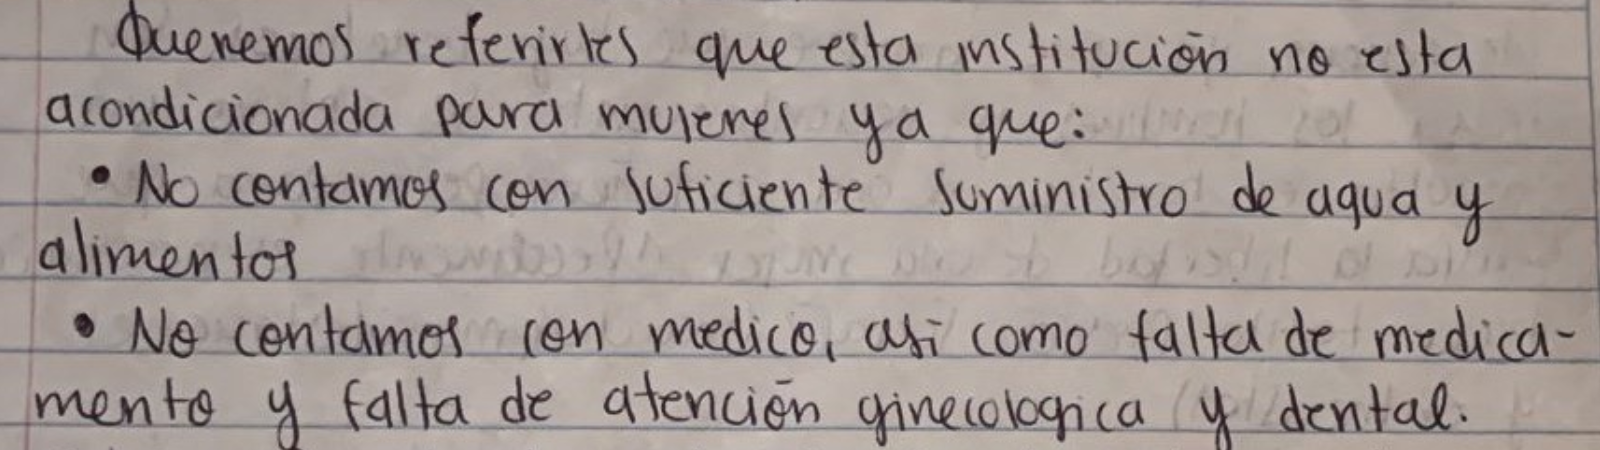 Queremos referirles que esta institución no esta
acondicionada para mujeres ya que:
• No contamos con suficiente suministro de agua y
alimentos
• No contamos con medico, asi como falta de medica-
mento y falta de atención ginecologica y dental.